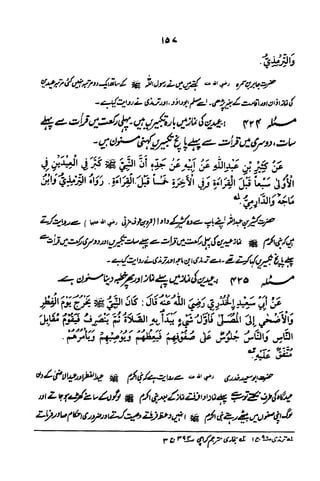 ۱۵۷
وَالتِّرْمِذِيُّ.
حضرت جابر بن سمرہ رضی اللہ عنہ کہتے ہیں میں نے رسول اللہ ﷺ کے ساتھ ایک دو مرتبہ نہیں کئی مرتبہ عیدین
کی نماز اذان اور اقامت کے بغیر پڑھی۔ اسے مسلم، ابوداؤد، اور ترمذی نے روایت کیا ہے۔
مسئلہ ۴۲۴ عیدین کی نماز میں بارہ تکبیریں ہیں۔ پہلی رکعت میں قرأت سے پہلے
سات، دوسری میں قرأت سے پہلے پانچ تکبیریں کہنی مسنون ہیں۔
عَنْ كَثِيْرِ بْنِ عَبْدِاللهِ عَنْ أَبِيْهِ عَنْ جَدِّهِ أَنَّ النَّبِيَّ ﷺ كَبَّرَ فِي الْعِيْدَيْنِ فِي
الْأُوْلَى سَبْعًا قَبْلَ الْقِرَاءَةِ وَفِي الْآخِرَةِ خَمْسًا قَبْلَ الْقِرَاءَةِ. رَوَاهُ التِّرْمِذِيُّ وَابْنُ
مَاجَهْ وَالدَّارِمِيُّ
حضرت کثیر بن عبداللہ اپنے باپ سے وہ کثیر کے دادا سے روایت کرتے
ہیں کہ نبی اکرم ﷺ نماز عیدین کی پہلی رکعت میں قرأت سے پہلے سات تکبیریں اور دوسری رکعت میں قرأت سے
پہلے پانچ تکبیریں کہتے تھے۔ اسے ترمذی، ابن ماجہ اور دارمی نے روایت کیا ہے۔
مسئلہ ۴۲۵ عیدین کی نماز میں پہلے نماز اور پھر خطبہ دینا مسنون ہے۔
عَنْ أَبِيْ سَعِيْدٍ الْخُدْرِيِّ رَضِيَ اللهُ عَنْهُ قَالَ: كَانَ النَّبِيُّ ﷺ يَخْرُجُ يَوْمَ الْفِطْرِ
وَالْأَضْحَى إِلَى الْمُصَلَّى فَأَوَّلُ شَيْءٍ يَبْدَأُ بِهِ الصَّلَاةُ ثُمَّ يَنْصَرِفُ فَيَقُوْمُ مُقَابِلَ
النَّاسِ وَالنَّاسُ جُلُوْسٌ عَلَى صُفُوْفِهِمْ فَيَعِظُهُمْ وَيُوْصِيْهِمْ وَيَأْمُرُهُمْ.
مُتَّفَقٌ عَلَيْهِ
حضرت ابو سعید خدری رضی اللہ عنہ سے روایت ہے کہ نبی اکرم ﷺ عید الفطر اور عید الاضحی کے دن
عیدگاہ کی طرف نکلتے تو سب سے پہلے نماز ادا فرماتے نماز کے بعد نبی اکرم ﷺ لوگوں کے سامنے کھڑے ہو جاتے اور
لوگ اپنی صفوں میں بیٹھے رہتے نبی اکرم ﷺ انہیں وعظ فرماتے وصیت کرتے اور ضروری احکام صادر فرماتے